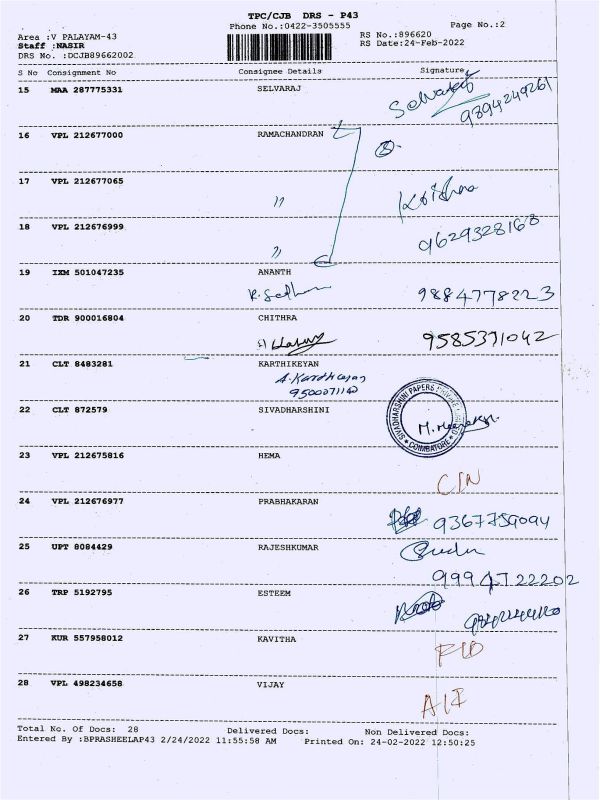 TPC/CJB DRS - P43
Phone No.:0422-3505555 Page No.:2
Area :V PALAYAM-43 RS No.:896620
Staff :NASIR RS Date:24-Feb-2022
DRS No. :DCJB89662002
S No Consignment No Consignee Details Signature
15 MAA 287775331 SELVARAJ Selvaraj
9894249261
16 VPL 212677000 RAMACHANDRAN
17 VPL 212677065 "
Krishna
18 VPL 212676999 "
9629328168
19 IXM 501047235 ANANTH
9884778223
20 TDR 900016804 CHITHRA
9585371042
21 CLT 8483281 KARTHIKEYAN
A. Karthikeyan
22 CLT 872579 SIVADHARSHINI
SIVADHARSHINI PAPERS PRIVATE LIMITED
COIMBATORE
23 VPL 212675816 HEMA
CIN
24 VPL 212676977 PRABHAKARAN
9367759094
25 UPT 8084429 RAJESHKUMAR
9994722202
26 TRP 5192795 ESTEEM
27 KUR 557958012 KAVITHA
28 VPL 498234658 VIJAY
Total No. Of Docs: 28 Delivered Docs: Non Delivered Docs:
Entered By :BPRASHEELAP43 2/24/2022 11:55:58 AM Printed On: 24-02-2022 12:50:25